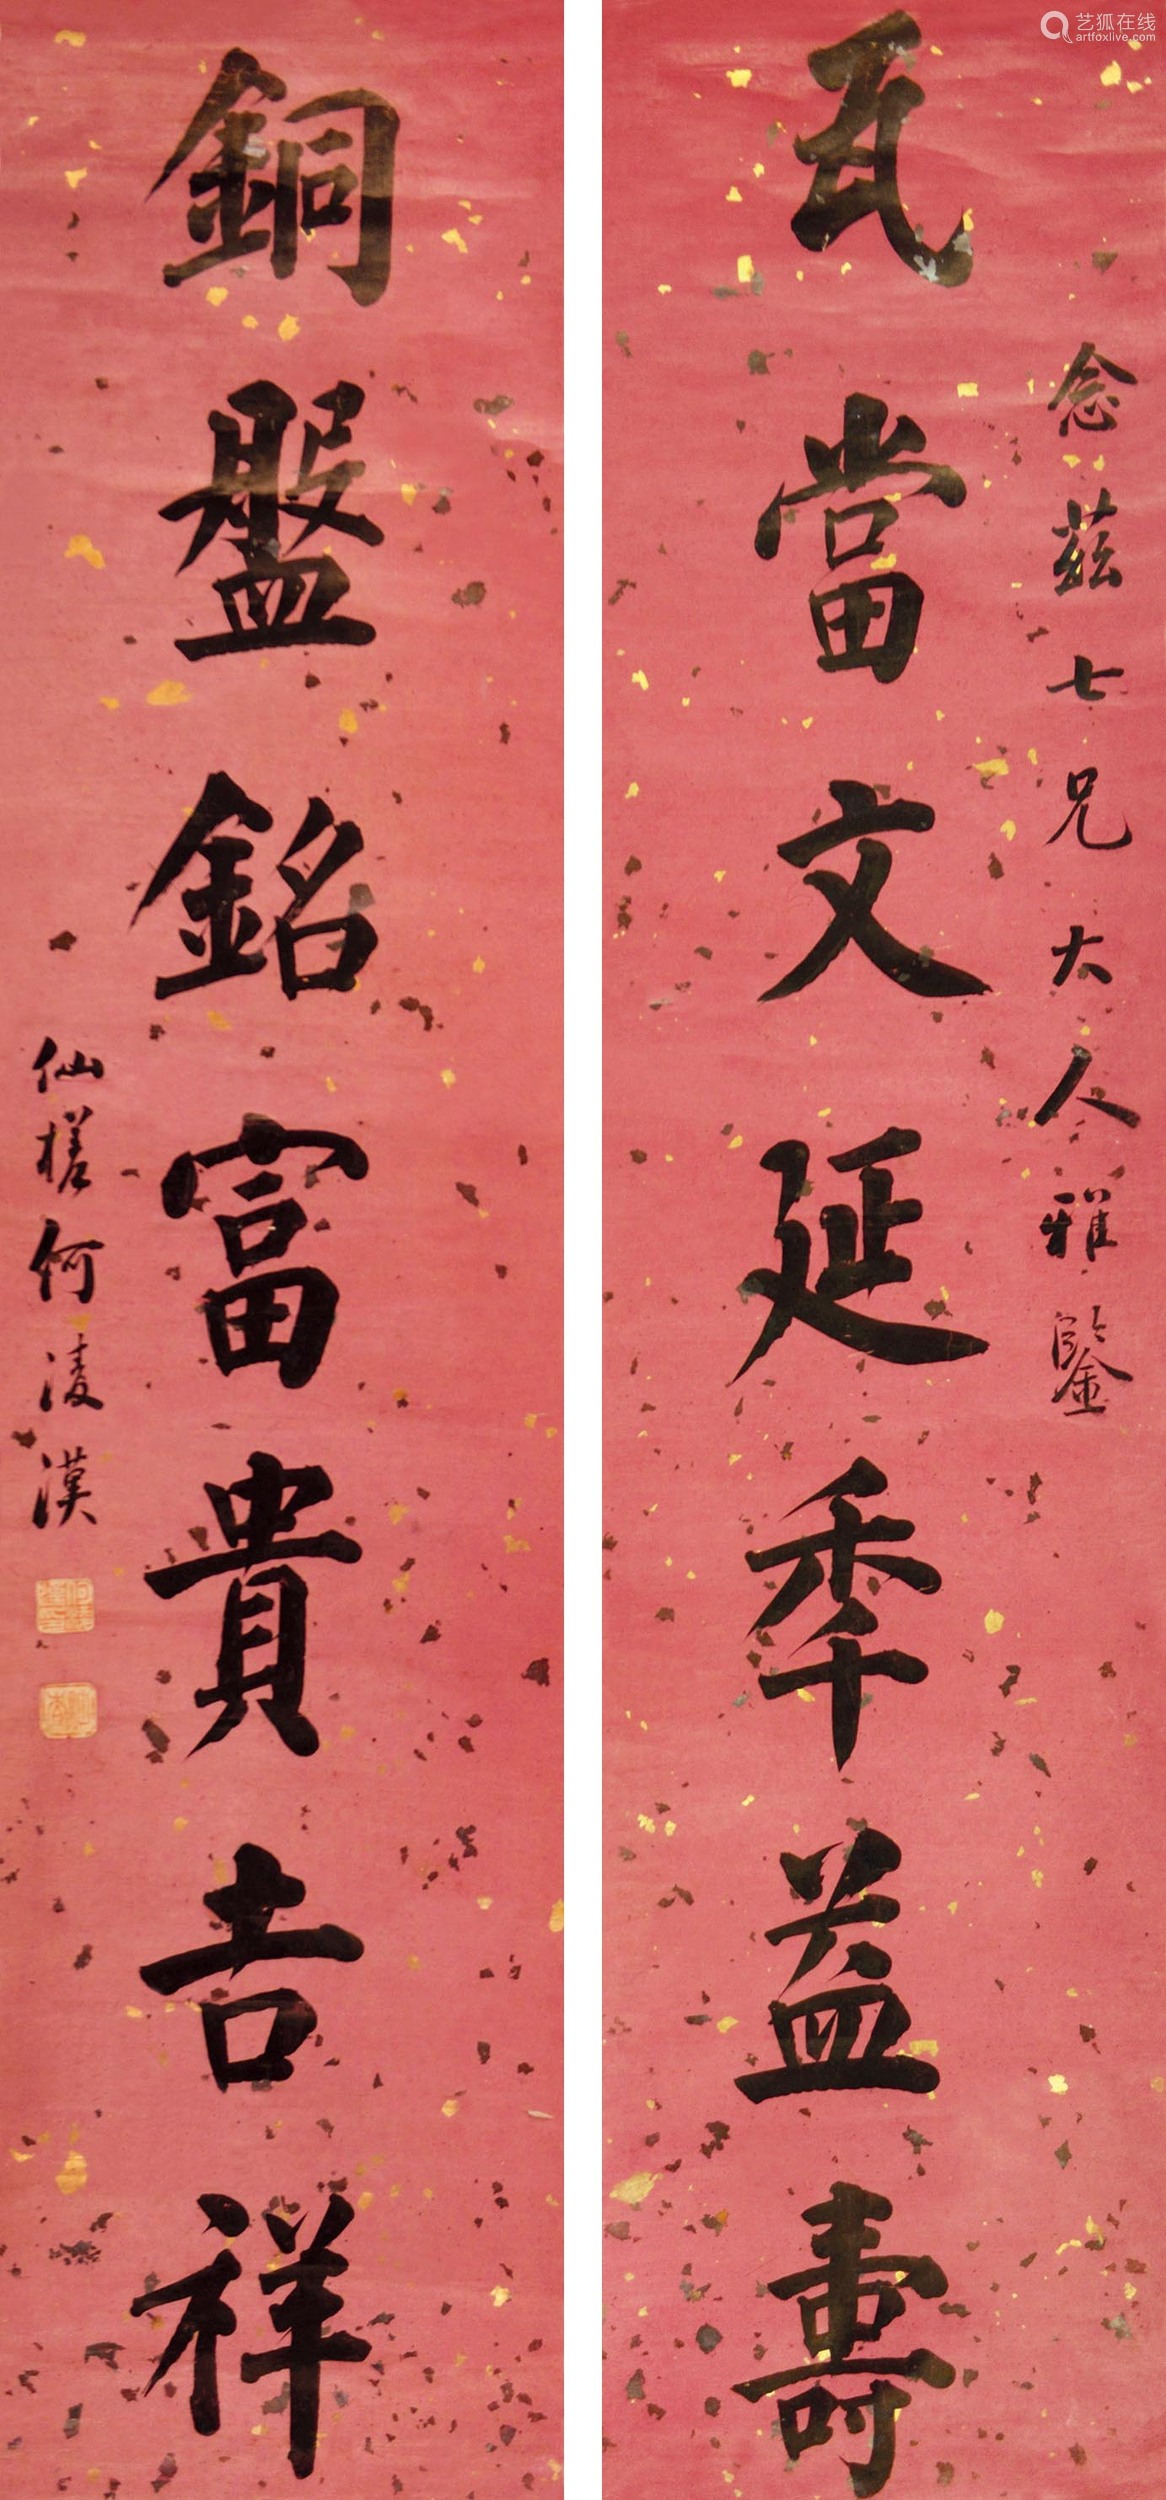 念茲七兄大人雅鑒
瓦當文延秊益壽
銅盤銘富貴吉祥
仙槎何淩漢
艺狐在线
artfoxlive.com